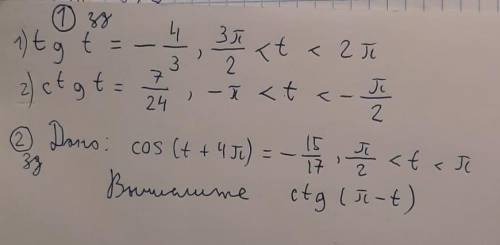 ① зз
1) tg t = -4/3, 3π/2 < t < 2π
2) ctg t = 7/24, -π < t < -π/2
② Дано: cos(t + 4π) = -15/17, π/2 < t < π
зз
Вычислите ctg(π-t)